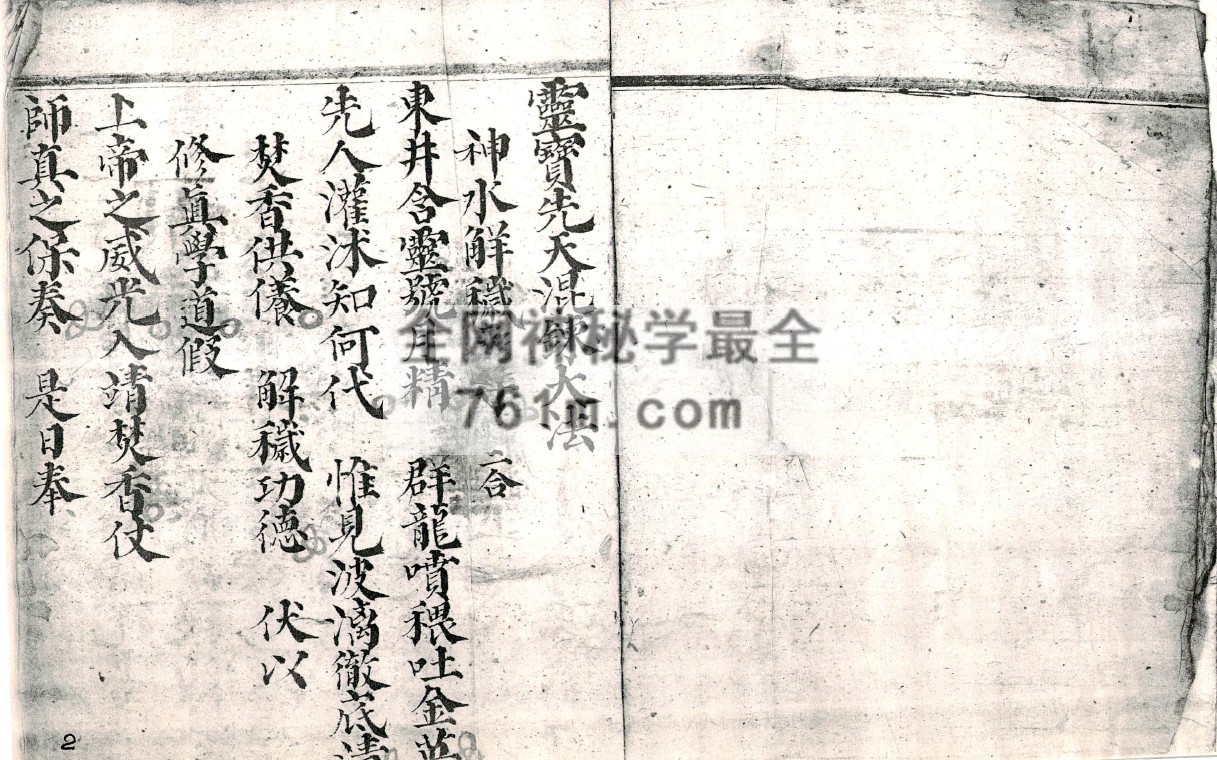 靈寶先天混鍊大法
神水解穢 二合
東井含靈號月精 群龍噴穢吐金英
先人灌沐知何代 惟見波漓徹底清
焚香供養 解穢功德 伏以
修眞學道假
上帝之威光入靖焚香仗
師真之保奏 是日奉
2
全网神秘学最全
761n.com